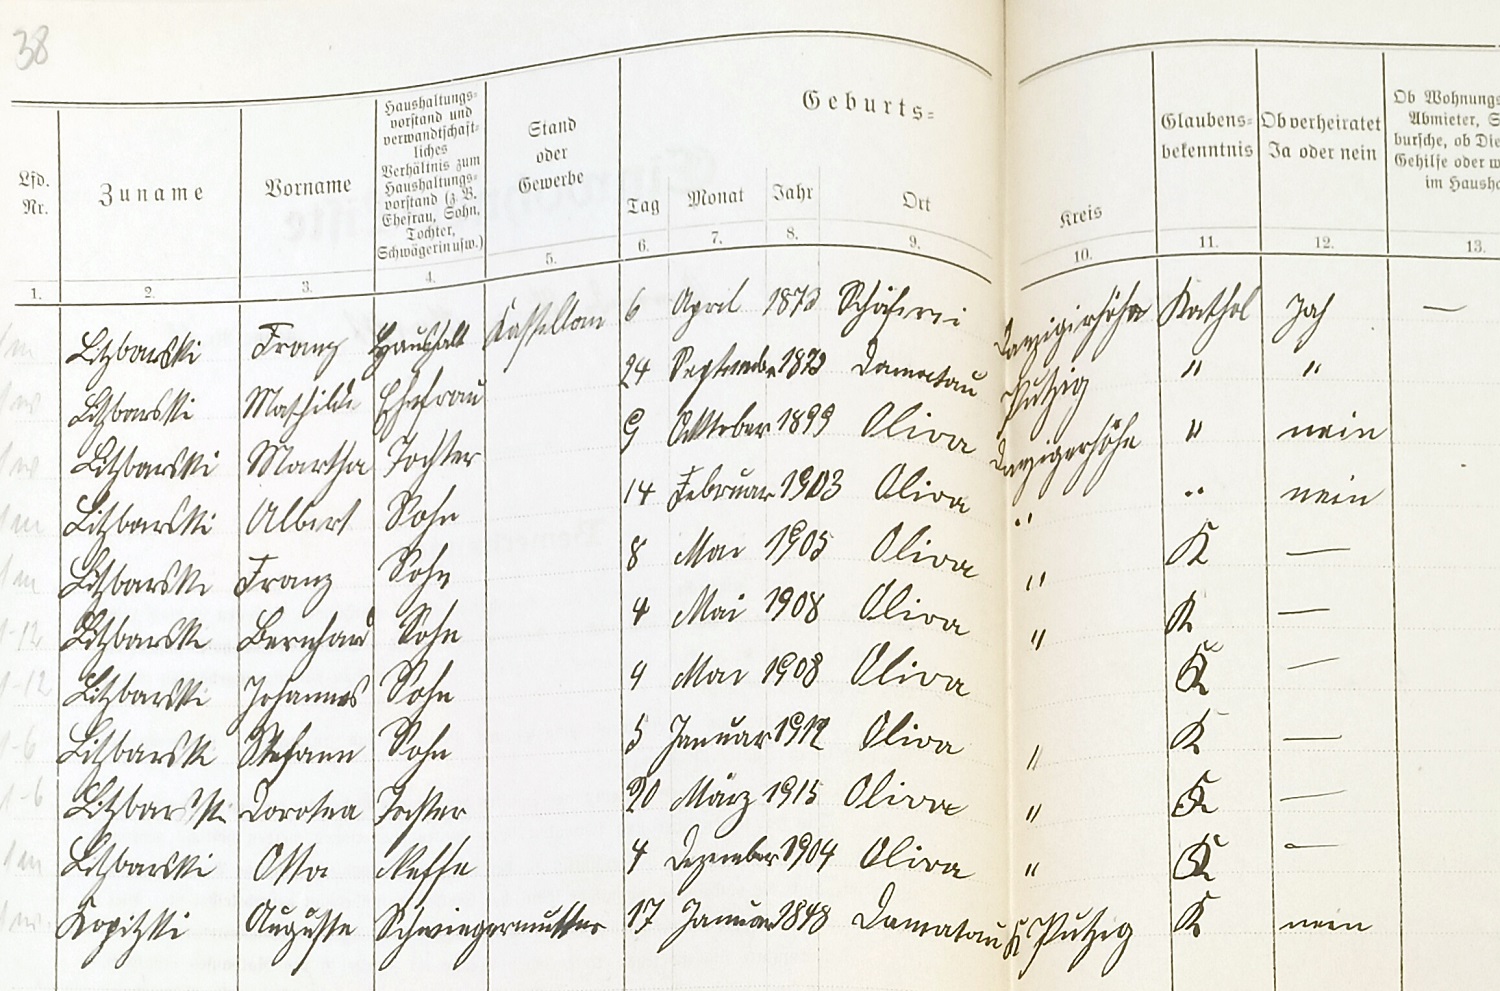 38
Lfd. Nr. Zuname Vorname Haushaltungs- vorstand und verwandtschaft- liches Verhältnis zum Haushaltungs- vorstand (z. B. Ehefrau, Sohn, Tochter, Schwägerin usw.) Stand oder Gewerbe Geburts- Tag Monat Jahr Ort Kreis Glaubens- bekenntnis Ob verheiratet Ja oder nein Ob Wohnungs Abmieter, S bursche, ob Die Gehilfe oder w im Hausha
1. 2. 3. 4. 5. 6. 7. 8. 9. 10. 11. 12. 13.
Litzbarski Franz Haushalt Kastellan 6 April 1873 Schäferei Danzigerhöhe Kathol Jah —
Litzbarski Mathilde Ehefrau 24 September 1873 Damatau Putzig " "
Litzbarski Martha Tochter 9 Oktober 1899 Oliva Danzigerhöhe " nein
Litzbarski Albert Sohn 14 Februar 1903 Oliva " " nein
Litzbarski Franz Sohn 8 Mai 1905 Oliva " K —
Litzbarski Bernhard Sohn 4 Mai 1908 Oliva " K —
Litzbarski Johannes Sohn 4 Mai 1908 Oliva K —
Litzbarski Stefann Sohn 5 Januar 1912 Oliva " K —
Litzbarski Dorotea Tochter 20 März 1915 Oliva " K —
Litzbarski Otto Neffe 4 Dezember 1904 Oliva " K —
Kopitzki Auguste Schwiegermutter 17 Januar 1848 Damatau Putzig K nein